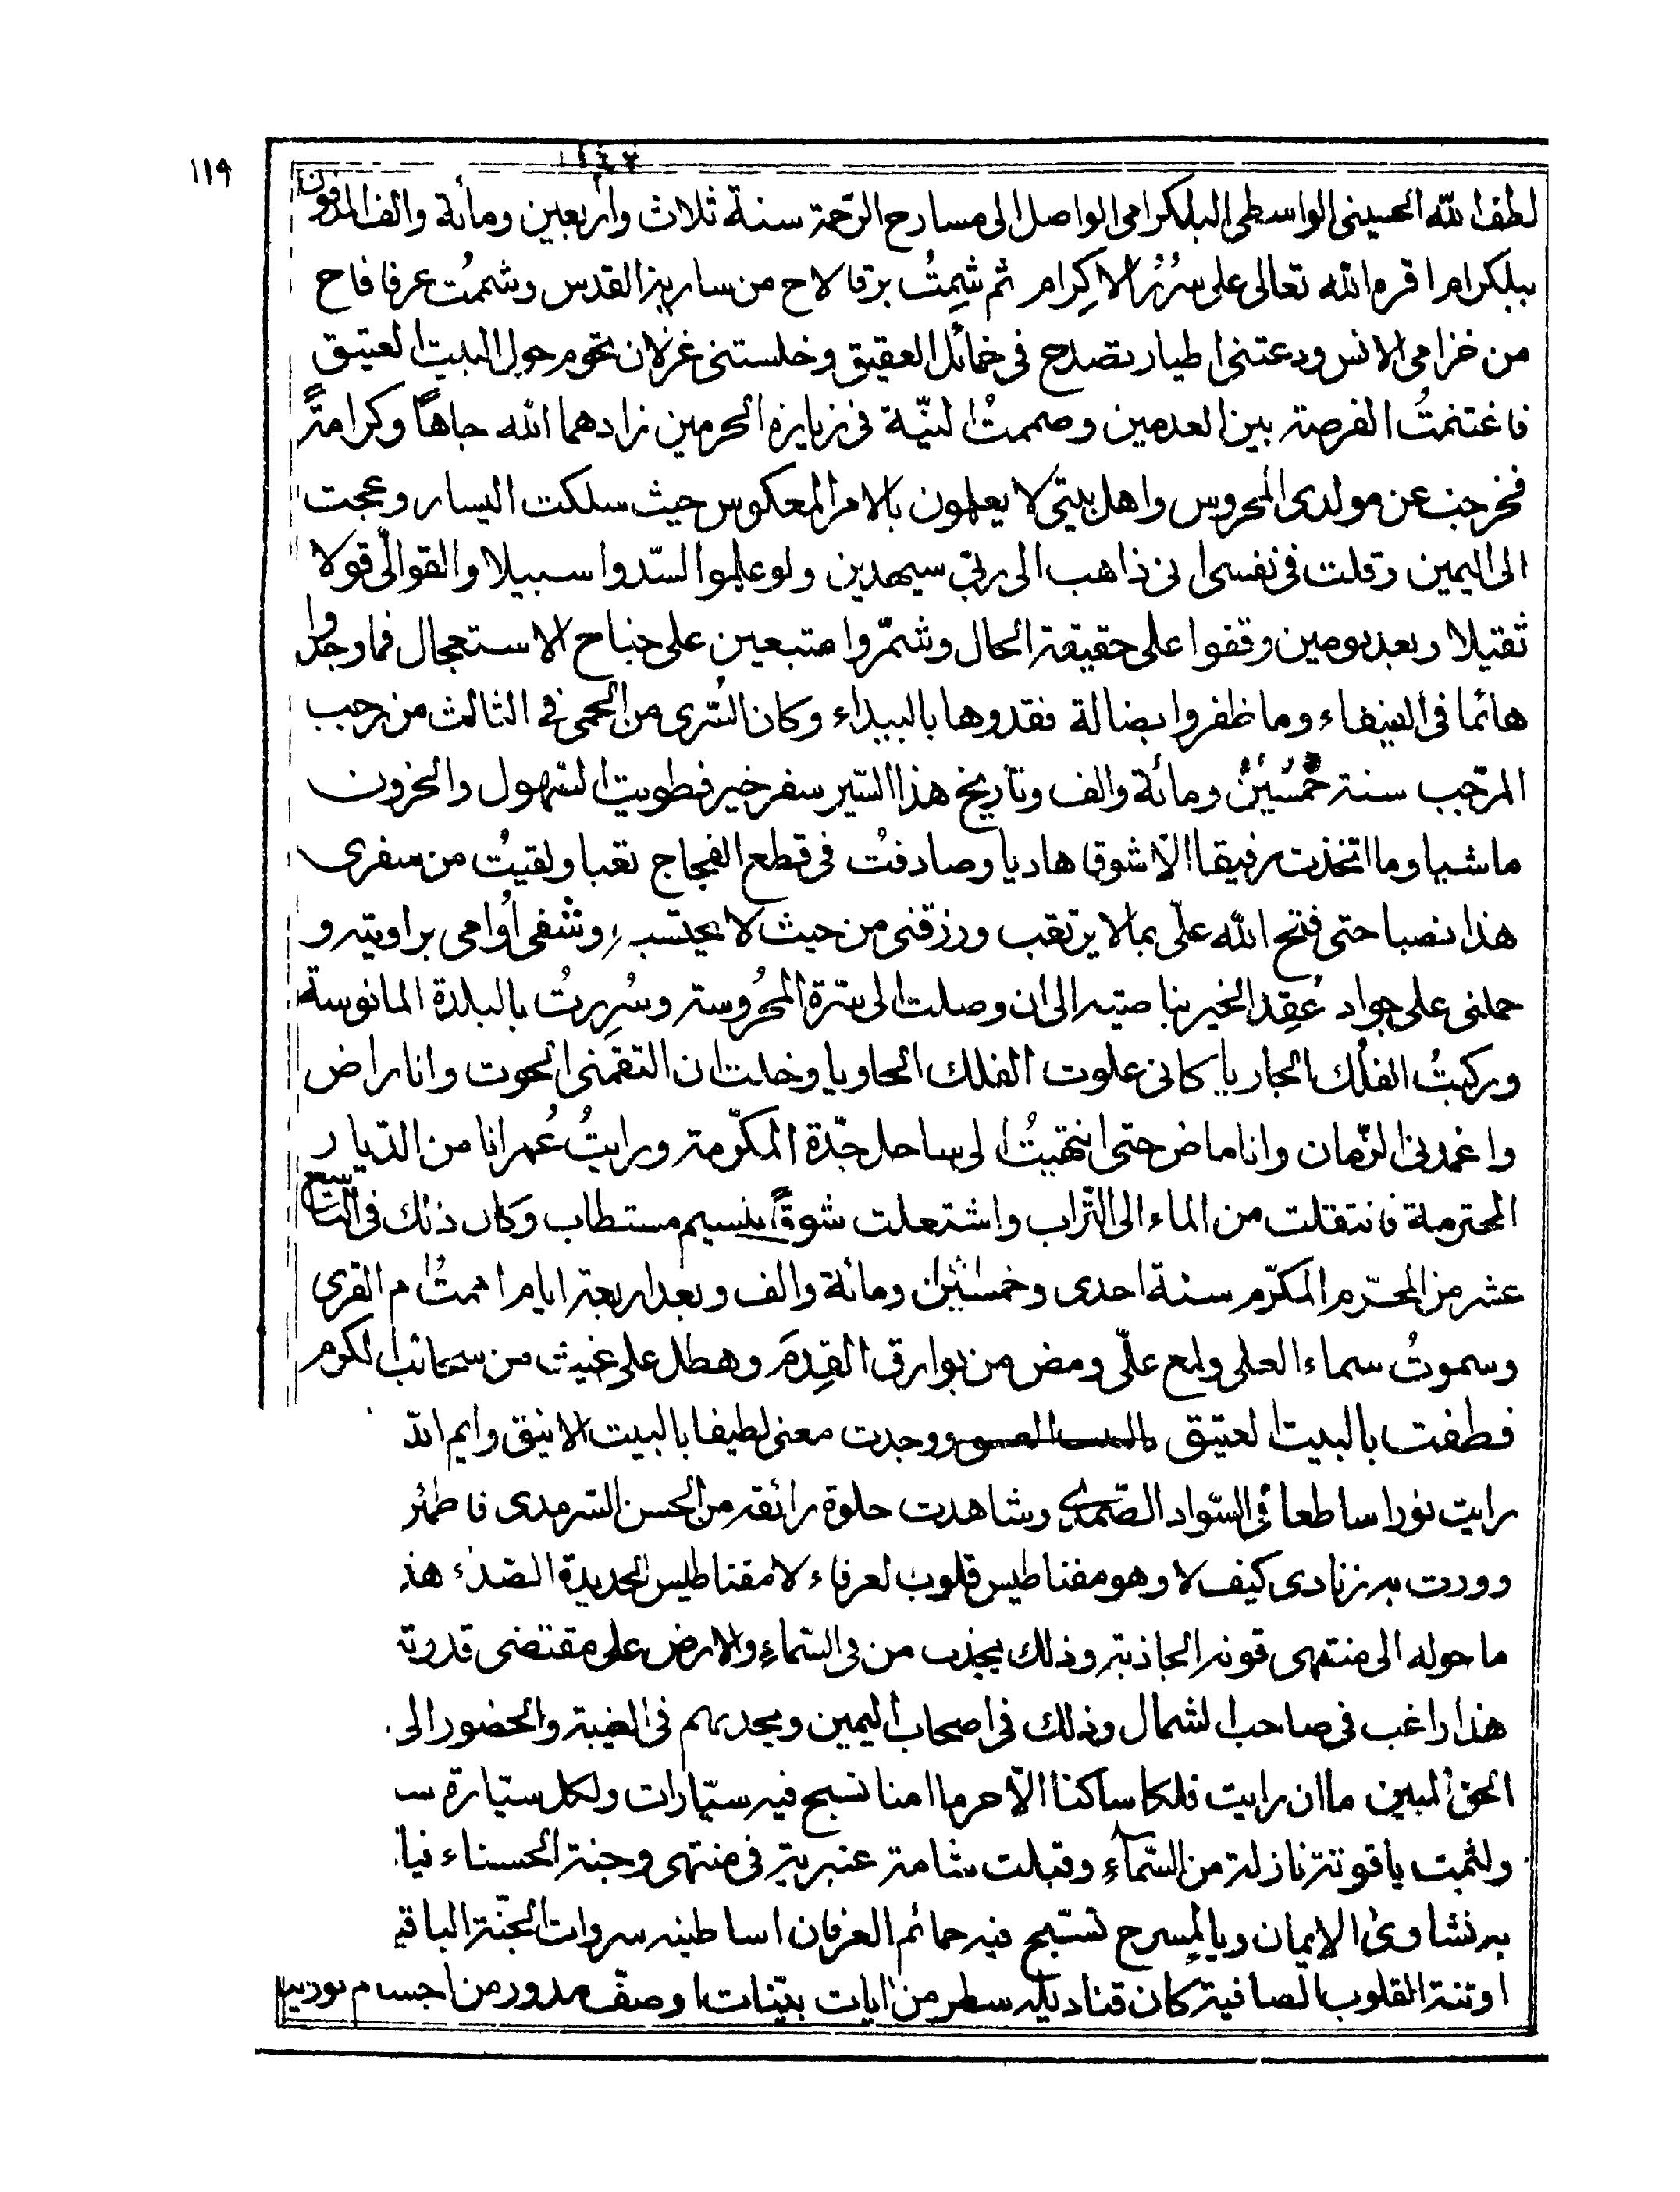 ١١٩
١١٤٣
لطف الله الحسيني الواسطي البلكرامي الواصل الى مسارح الرحمة سنة ثلاث واربعين ومأئة والف المدفون
ببلكرام اقره الله تعالى على سُرُر الاكرام ثم شِمِتُ برقا لاح من سارية القدس وشممتُ عرفا فاح
من خزامى الانس ودعتني اطيار تصدح في خمائل العقيق وخلستني غزلان تحوم حول البيت العتيق
فاغتنمتُ الفرصة بين العدمين وصممتُ النيّة في زيارة الحرمين زادهما الله جاهاً وكرامةً
فخرجت عن مولدى المحروس واهل بيتي لا يعلمون بالامر المعكوس حيث سلكت اليسار وعجت
الى اليمين وقلت في نفسى اني ذاهب الى ربّي سيهدين ولو علموا لسّدوا سبيلا والقوا لّى قولا
ثقيلا وبعد يومين وقفوا على حقيقة الحال وشمّروا متبعين على جناح الاستعجال فما وجدوا
هائما في الفيفاء وما ظفروا بضالة فقدوها بالبيداء وكان السُرى من الحمى في الثالث من رجب
المرجّب سنة خمسين ومائة والف وتاريخ هذا السّير سفر خير فطويت السّهول والحزون
ماشيا وما اتخذت رفيقا الّا شوقا هاديا وصادفتُ في قطع الفجاج تعبا ولقيتُ من سفرى
هذا نصبا حتى فتح الله علّى بما لا يرتقب ورزقني من حيث لا يحتسب وشفى اُوامى براويته و
حملني على جواد عُقِد الخير بناصيته الى ان وصلت الى سترة المحرُوسة وسُرِرتُ بالبلدة المانوسة
وركبتُ الفلُك الجاريا كاني علوت الفلك الحاويا وخلت ان التقمني الحوت وانا راض
واغمدني الزّمان وانا ماض حتى انتهيتُ الى ساحل جدّة المكرّمة ورايتُ عُمرانا من الدّيار
المحترمة فانتقلت من الماء الى التّراب واشتعلت شوقاً بنسيم مستطاب وكان ذلك في التاسع
عشر من المحرّم المكرّم سنة احدى وخمسين ومائة والف وبعد اربعة ايام اممتُ ام القرى
وسموتُ سماء العلى ولمع علّى ومض من بوارق القِدمَ وهطل على غيث من سحائب الكرم
فطفت بالبيت العتيق ووجدت معنى لطيفا بالبيت الانيق وايم الله
رايت نورا ساطعا في السّواد الصّمدى وشاهدت حلوة رائقة من الحسن السّرمدى
وورت به زنادى كيف لا وهو مغناطيس قلوب العرفاء لا مقناطيس الحديدة الصّدء
ما حوله الى منتهى قوته الجاذبة وذلك يجذب من في السّماء والارض على مقتضى قدرته
هذا راغب في صاحب الشمال وذلك في اصحاب اليمين ويجذبهم في الغيبة والحضور الى
الحق المبين ما ان رايت فلكا ساكنا الّا حرما امنا تسبح فيه سيّارات ولكل سيّارة
ولثمت ياقوتة نازلة من السّماء وقبلت شامة عنبرية في منتهى وجنة الحسناء
به نشاوى الايمان ويا لمسرح تسّبح فيه حمائم العرفان اساطينه سروات الجنّة الباقية
القلوب الصافية كان قناديله سطر من ايات بيّنات او صفّ مدور من اجسام